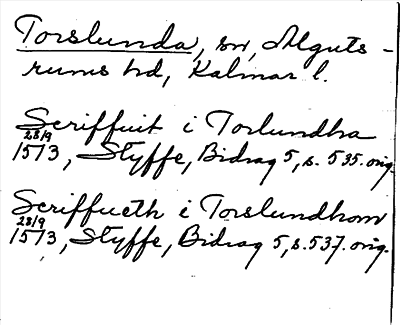 Torslunda, sn, Alguts-
rums hd, Kalmar l.
Scriffuit i Torlundha
28/9
1513, Styffe, Bidrag 5, s. 535. orig.
Scriffueth i Torslundhom
28/9
1513, Styffe, Bidrag 5, s. 537. orig.